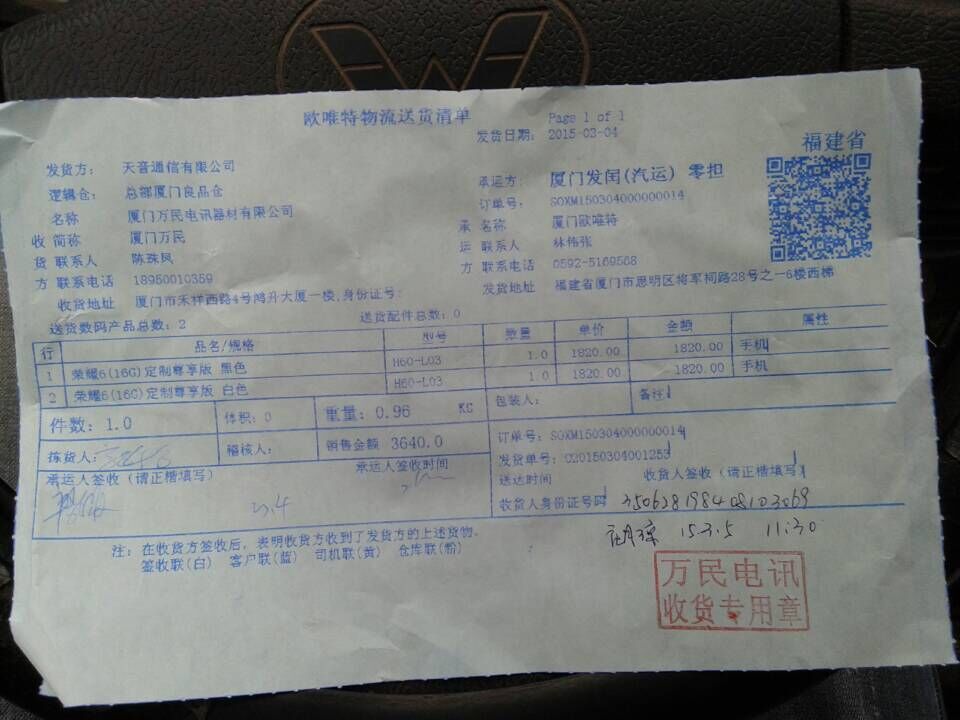 欧唯特物流送货清单
Page 1 of 1
发货日期: 2015-03-04
福建省
发货方: 天音通信有限公司
承运方: 厦门发闰(汽运) 零担
逻辑仓: 总部厦门良品仓
订单号: SOXM150304000000014
名称 厦门万民电讯器材有限公司
名称 厦门欧唯特
简称 厦门万民
联系人 林伟张
联系人 陈珠凤
联系电话 0592-5169568
联系电话 18950010359
发货地址 福建省厦门市思明区将军祠路28号之一6楼西梯
收货地址 厦门市禾祥西路4号鸿升大厦一楼,身份证号:
收货方
承运方
送货数码产品总数: 2
送货配件总数: 0
行 品名/规格 型号 数量 单价 金额 属性
1 荣耀6(16G)定制尊享版 黑色 H60-L03 1.0 1820.00 1820.00 手机
2 荣耀6(16G)定制尊享版 白色 H60-L03 1.0 1820.00 1820.00 手机
件数: 1.0 体积: 0 重量: 0.96 KG 包装人: 备注
拣货人: 稽核人: 销售金额 3640.0
订单号: SOXM150304000000014
发货单号: 020150304001253
承运人签收 (请正楷填写) 承运人签收时间
送达时间 收货人签收 (请正楷填写)
收货人身份证号码 350628198408103069
15.3.5 11:30
注: 在收货方签收后, 表明收货方收到了发货方的上述货物.
签收联(白) 客户联(蓝) 司机联(黄) 仓库联(粉)
万民电讯
收货专用章